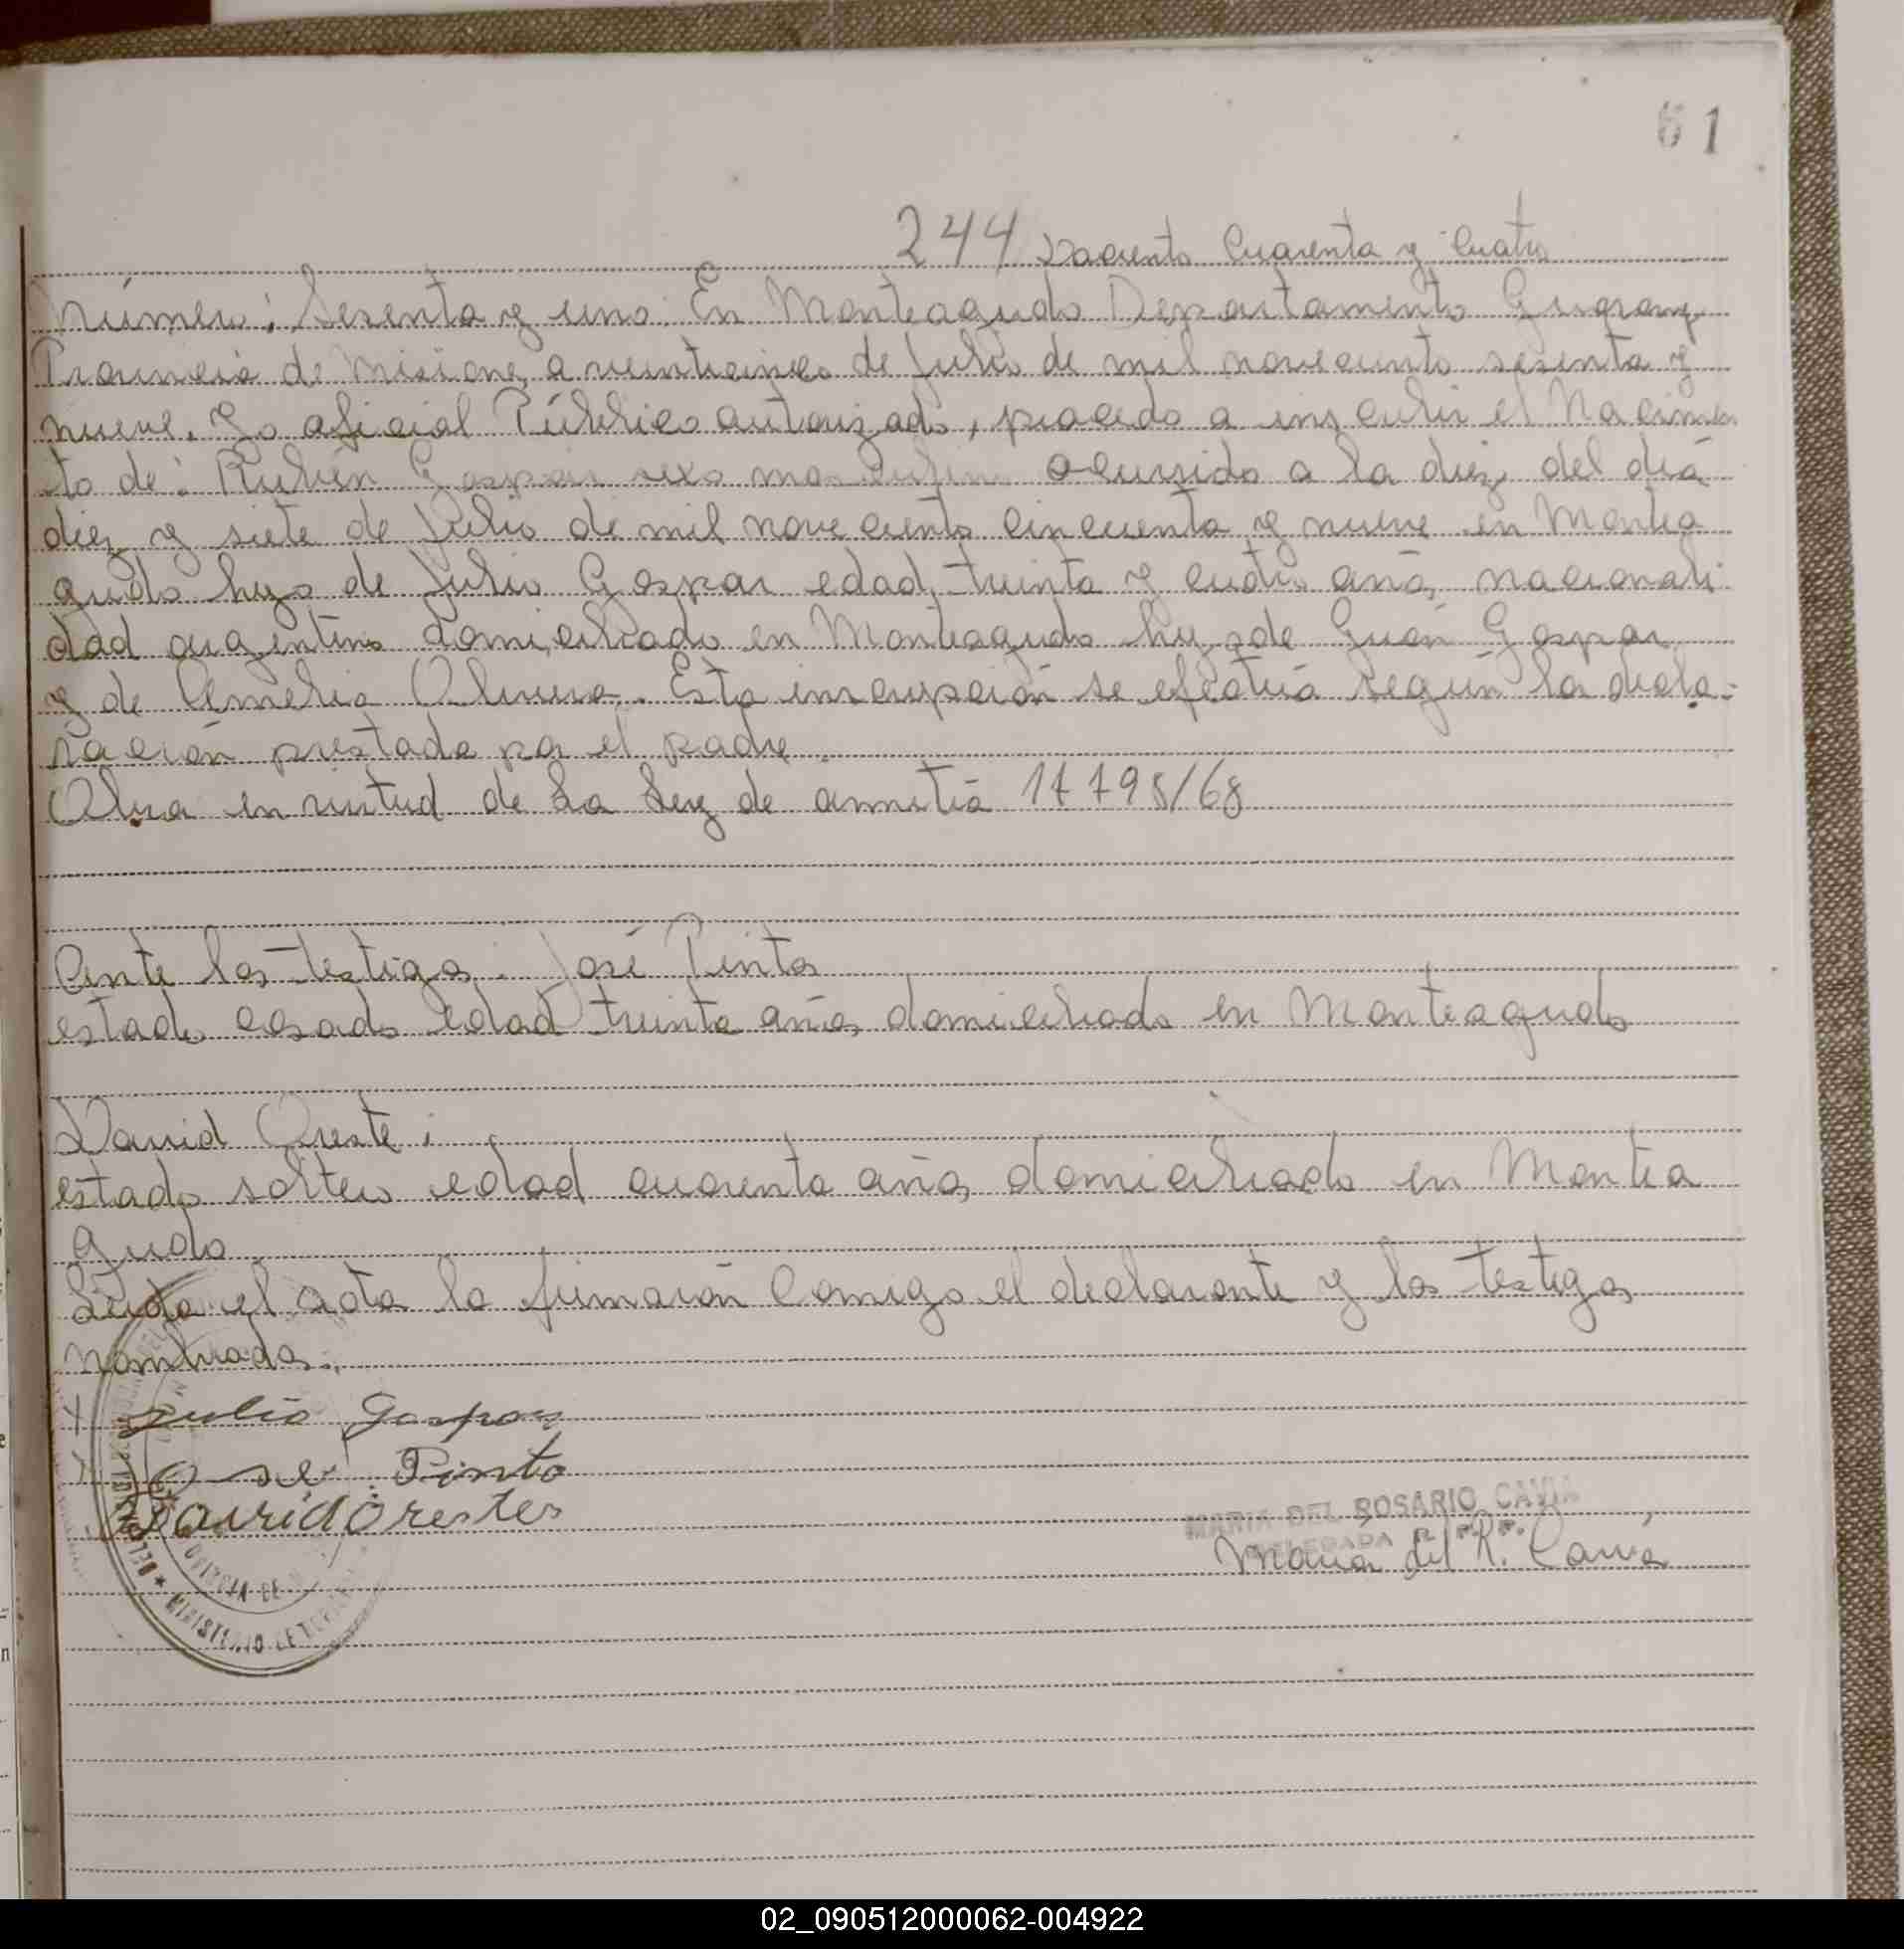 61
244 Dociento Cuarenta y Cuatro
Número: Sesenta y uno. En Monteagudo Departamento Guarany
Provincia de Misiones a veinticinco de Julio de mil novecento sesenta y
nueve. Yo oficial Público autorizado, procedo a inscribir el Nacimien
to de: Rubén Gaspar sexo masculino ocurrido a la diez del día
diez y siete de Julio de mil novecento cincuenta y nueve en Montea
gudo hijo de Julio Gaspar edad treinta y cuatro años nacionali
dad argentino domiciliado en Monteagudo hijo de Juan Gaspar
y de Amelia Olivera. Esta inscripción se efectúa según la decla-
ración prestada por el padre.
Obra en virtud de La Ley de amnitía 17798/68
Ante los testigos: José Pinto
estado casado edad treinta años domiciliado en Monteagudo
David Oreste:
estado soltero edad cuarenta años domiciliado en Montea
gudo
Leída el acta la firmarón Conmigo el declarante y los testigos
nombrados.
x Julio Gaspar
x José Pinto
David Orestes
MARIA DEL ROSARIO CAVIA
DELEGADA R. P. P.
María del R. Cavia
MINISTERIO DE
02_090512000062-004922